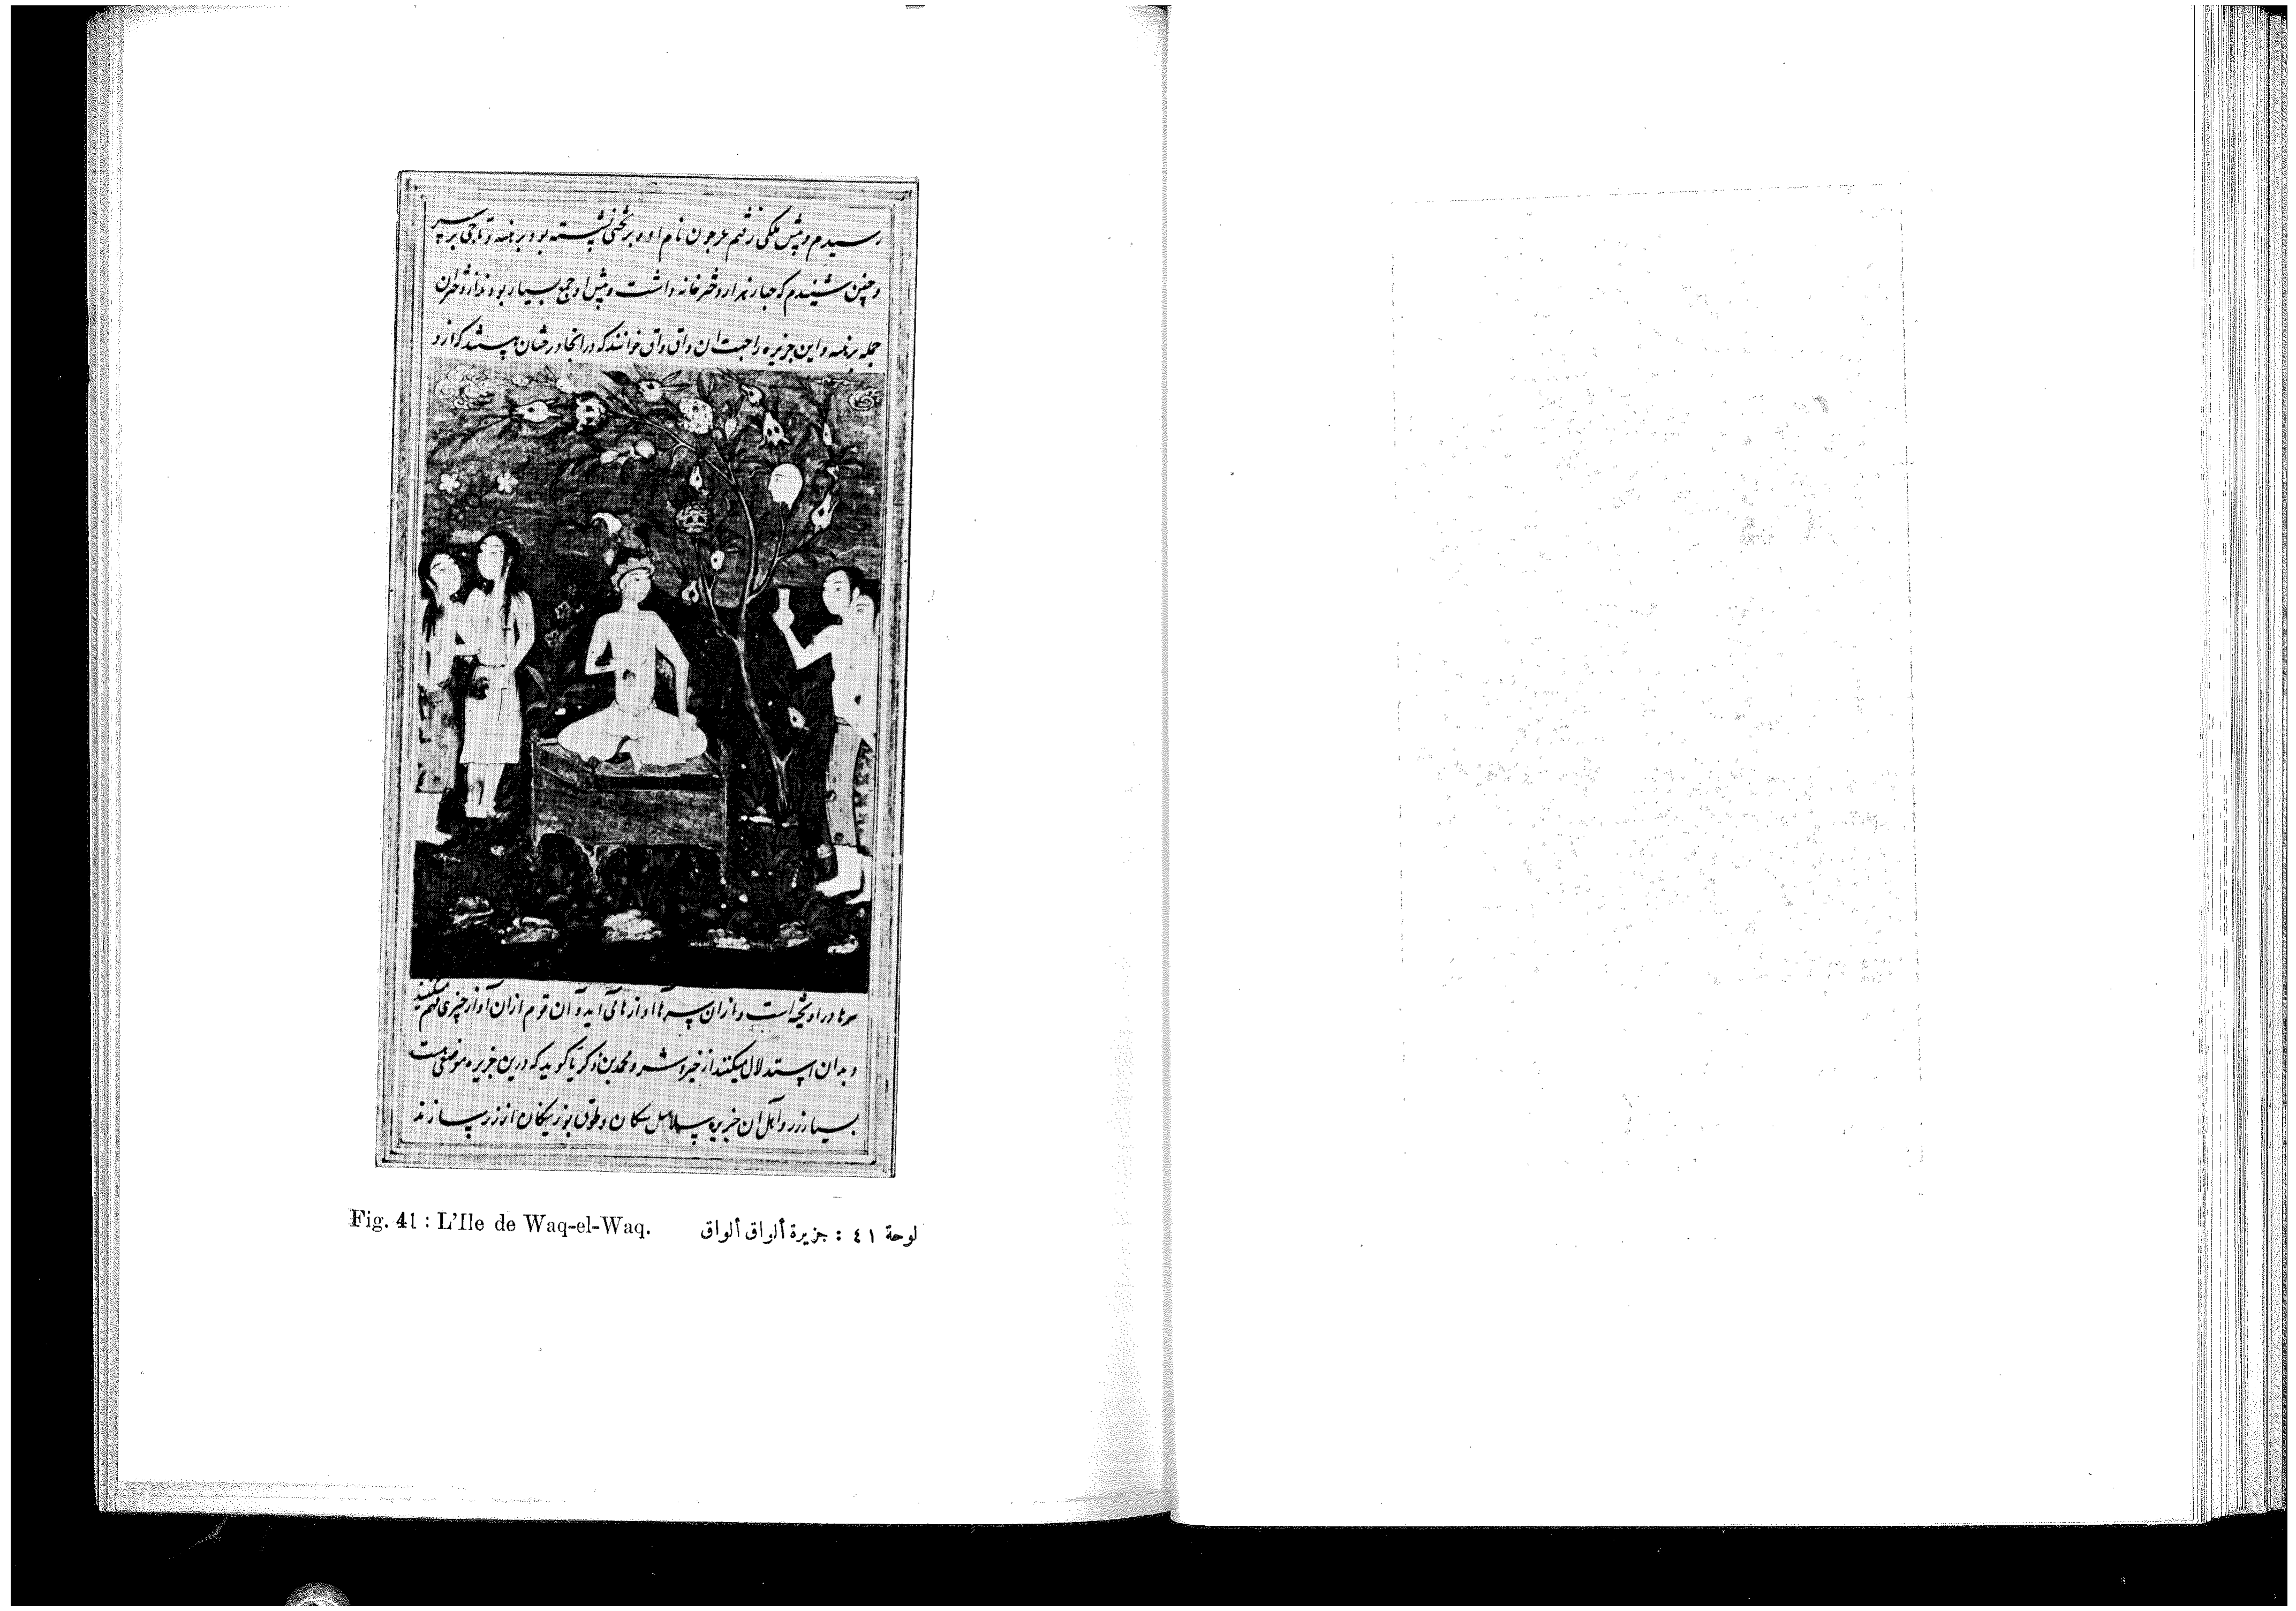 رسیدم و پیش ملکی رفتم عرجون نام او و بر تختی نشسته بود برهنه و تاجی بر سر
و چنین شنیدم که چهار هزار دختر خانه داشت و پیش او جمع بسیار بودند از دختران
جمله برهنه و این جزیره را جهت آن واق واق خوانند که در آنجا درختان هستند که از و
سرها در آویخته است و از آن سرها آوازهائی آید و آن قوم از آن آواز چیزی فهم میکنند
و بدان استدلال میکنند از خیر و شر و محمد بن ذکریا گوید که درین جزیره موضعی هست
بسیار زر و اهل آن جزیره سلاسل سگان و طوق بوزینگان از زر سازند
Fig. 41 : L'Ile de Waq-el-Waq.
لوحة ٤١ : جزيرة ألواق ألواق